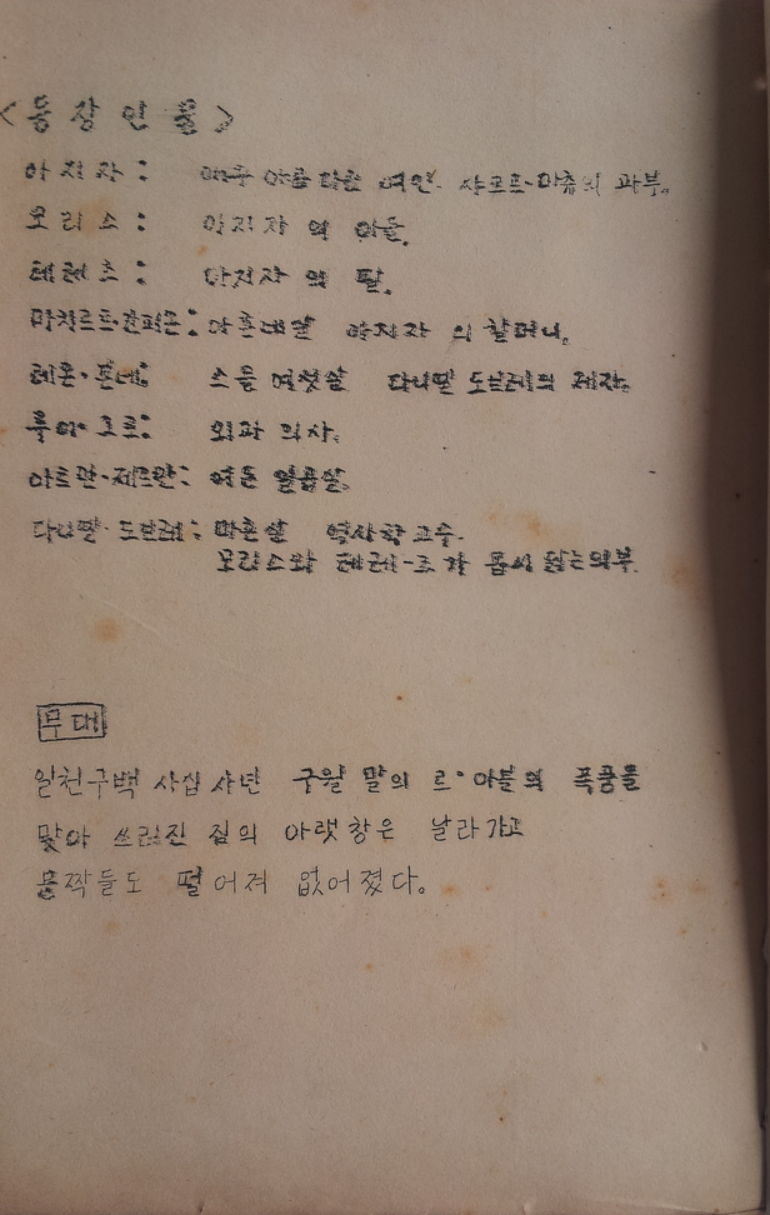 <등장인물>
아지자: 매우 아름다운 여인. 쟈코프·마츄의 과부.
모리스: 아지자의 아들.
테레즈: 아지자의 딸.
아흔네살 아지자의 할머니.
레온·본네: 스물 여섯살 다니엘 도브레의 제자.
루이·코르: 외과 의사.
아트만·제르만: 여든 일곱살.
다니엘·도브레: 마흔살 역사학 교수.
모리스와 테레-즈가 몹시 닮는의부.
무대
일천구백 사십 사년 구월 말의 르·아블의 폭풍을
맞아 쓰러진 집의 아랫창은 날라가고
문짝들도 떨어져 없어졌다.